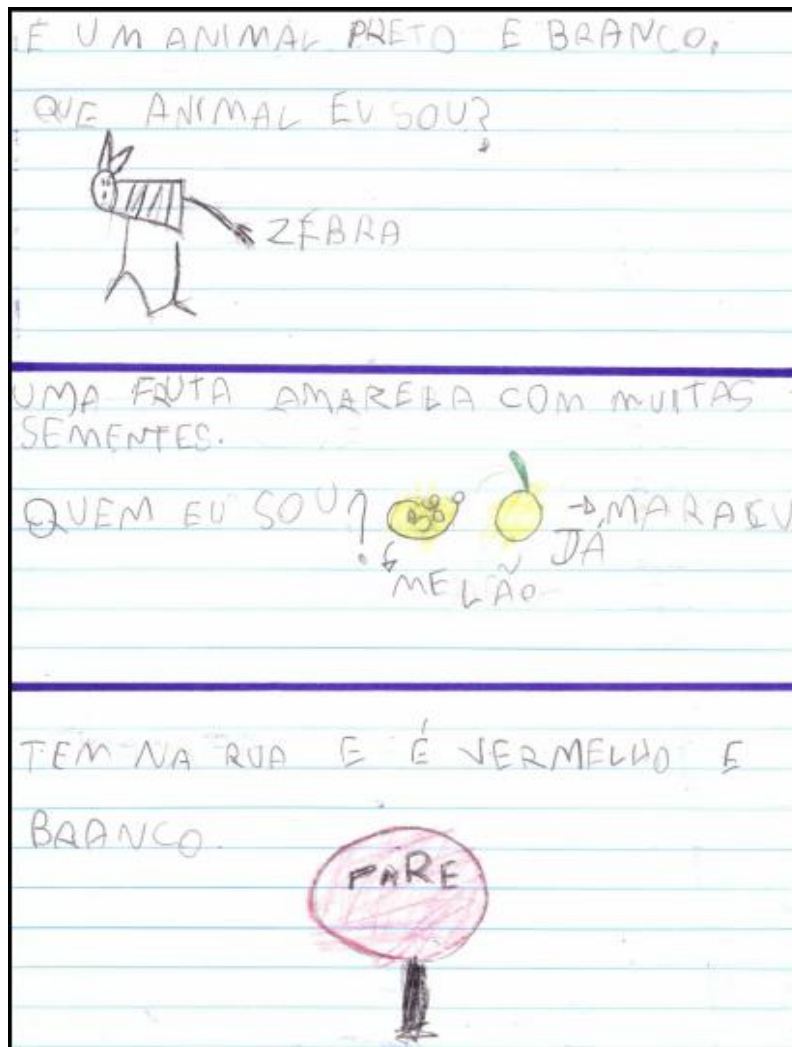 É UM ANIMAL PRETO E BRANCO.
QUE ANIMAL EU SOU?
ZÉBRA
UMA FRUTA AMARELA COM MUITAS
SEMENTES.
QUEM EU SOU? → MARACU
JÁ
MELÃO
TEM NA RUA E É VERMELHO E
BRANCO.
PARE